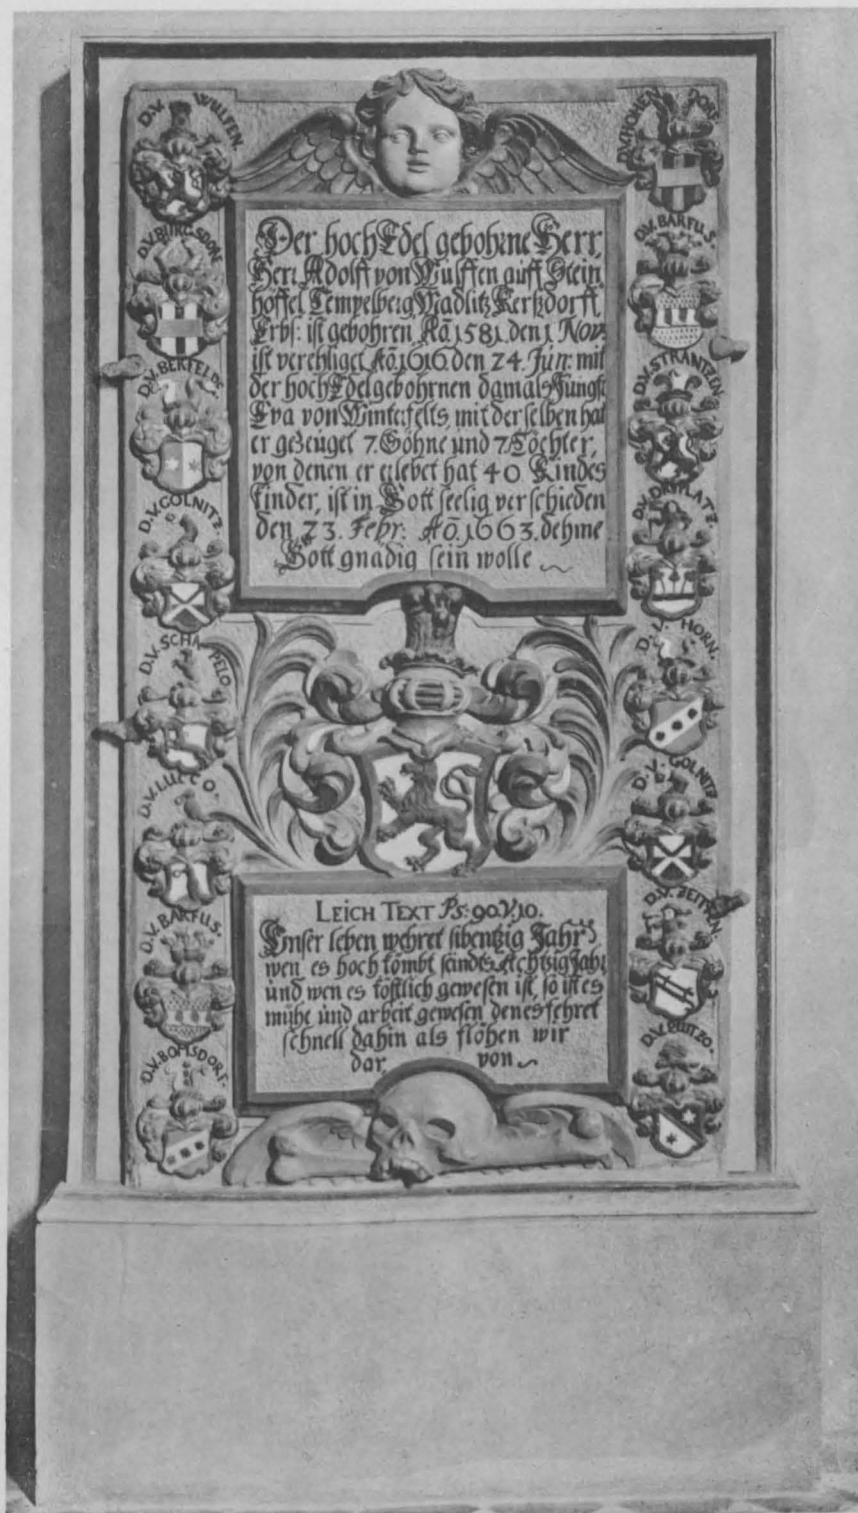 D.V. WULFEN.
D.V. BURGSDORF
D.V. BERFELDE
D.V. GOLNITZ
D.V. SCHAPELO
D.V. LUCCO.
D.V. BARFUS.
D.V. BOMSDORF.
Der hochEdel gebohrne Herr,
Herr Adolff von Wulffen auff Stein
hoffel Tempelberg Madlitz Kerßdorff
Erbs: ist gebohren Aã 1581. den 1 Nov:
ist verehliget Aõ 1616. den 24. Jun: mit
der hochEdelgebohrnen damals Jungf:
Eva von Winterfelts, mit derselben hat
er gezeuget 7. Söhne und 7. Töchter,
von denen er erlebet hat 40 Kindes
kinder, ist in Gott seelig verschieden
den 23. Febr: Aõ. 1663. dehme
Gott gnadig sein wolle
LEICH TEXT Ps: 90. V. 10.
Unser leben wehret sibentzig Jahr
wen es hoch kömbt seindts Achtzig Jahr
und wen es köstlich gewesen ist, so ist es
mühe und arbeit gewesen den es fehret
schnell dahin als flöhen wir
dar von
D.V. HOHENDORF
D.V. BARFUS.
D.V. STRANTZEN
D.V. PLATZ.
D.V. HORN.
D.V. GOLNITZ
D.V. ZEITEN.
D.V.